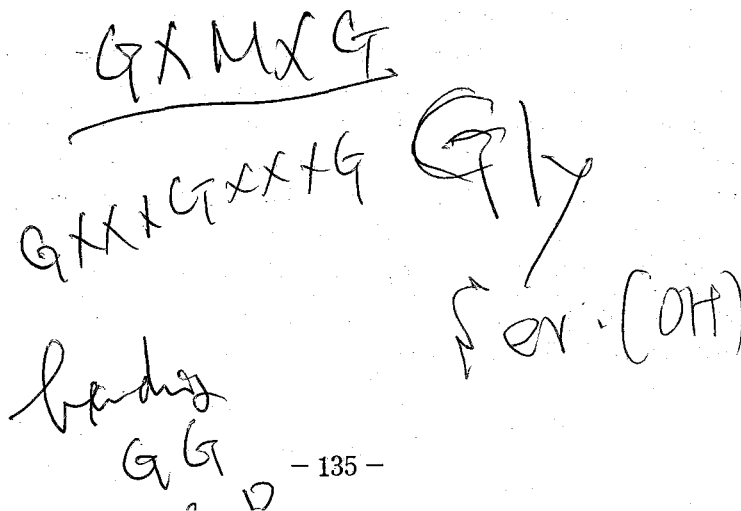 GXMXG
GXXXGXXXG
Gly
Ser. (OH)
bending
GG
- 135 -